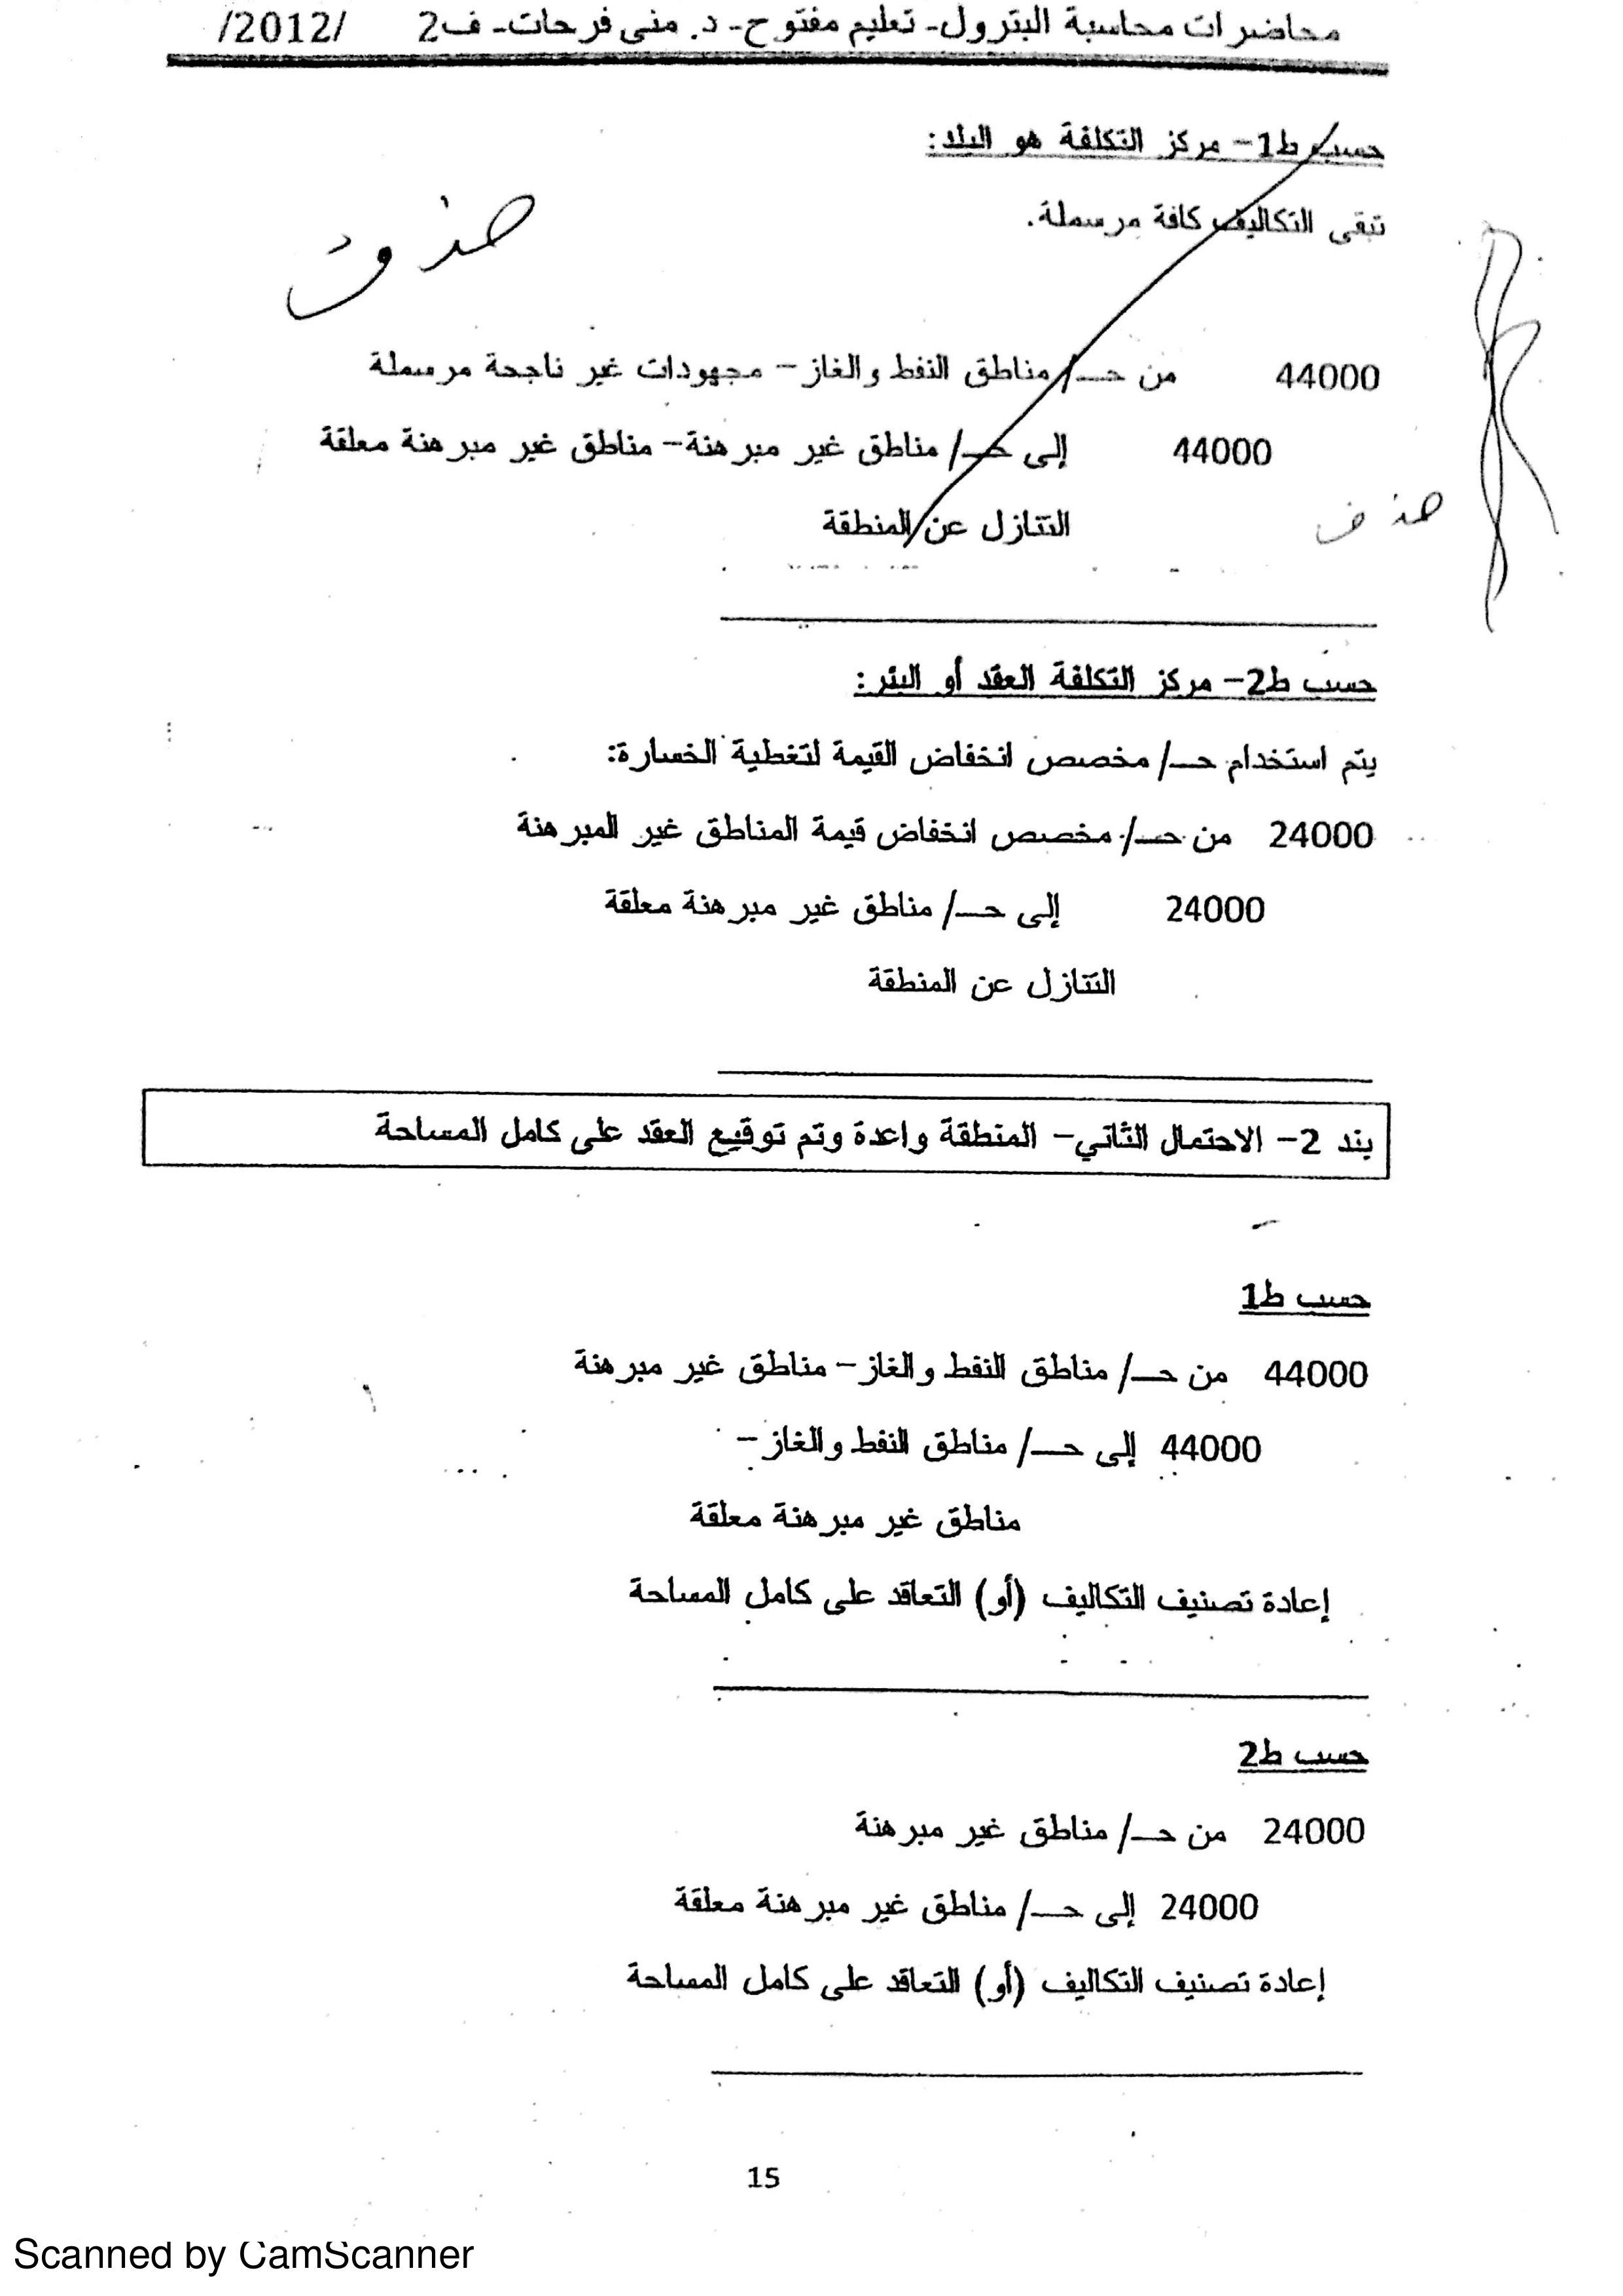 محاضرات محاسبة البترول- تعليم مفتوح- د. منى فرحات- ف2 /2012/
حسب ط1- مركز التكلفة هو البلد:
تبقى التكاليف كافة مرسملة.
حذف
44000 من حـ/ مناطق النفط والغاز- مجهودات غير ناجحة مرسملة
44000 إلى حـ/ مناطق غير مبرهنة- مناطق غير مبرهنة معلقة
حذف
التنازل عن المنطقة
حسب ط2- مركز التكلفة العقد أو البئر:
يتم استخدام حـ/ مخصص انخفاض القيمة لتغطية الخسارة:
24000 من حـ/ مخصص انخفاض قيمة المناطق غير المبرهنة
24000 إلى حـ/ مناطق غير مبرهنة معلقة
التنازل عن المنطقة
بند 2- الاحتمال الثاني- المنطقة واعدة وتم توقيع العقد على كامل المساحة
حسب ط1
44000 من حـ/ مناطق النفط والغاز- مناطق غير مبرهنة
44000 إلى حـ/ مناطق النفط والغاز-
مناطق غير مبرهنة معلقة
إعادة تصنيف التكاليف (أو) التعاقد على كامل المساحة
حسب ط2
24000 من حـ/ مناطق غير مبرهنة
24000 إلى حـ/ مناطق غير مبرهنة معلقة
إعادة تصنيف التكاليف (أو) التعاقد على كامل المساحة
15
Scanned by CamScanner